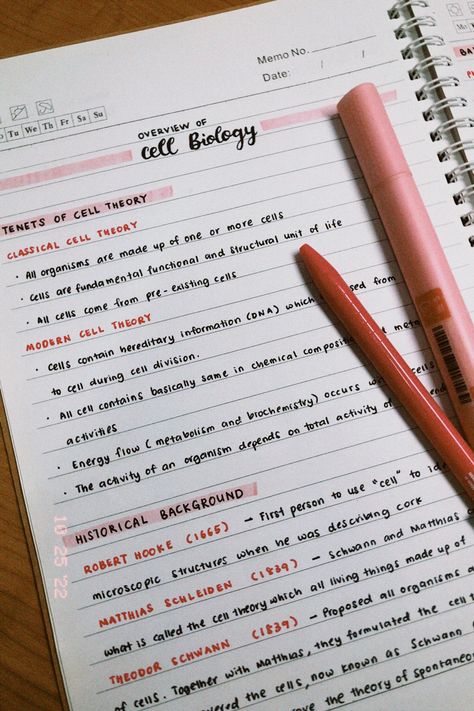 Memo No.
Date: / /
Tu We Th Fr Sa Su
Mo
OVERVIEW OF
Cell Biology
TENETS OF CELL THEORY
CLASSICAL CELL THEORY
· All organisms are made up of one or more cells
· Cells are fundamental functional and structural unit of life
· All cells come from pre-existing cells
MODERN CELL THEORY
· Cells contain hereditary information (DNA) which sed from
to cell during cell division.
· All cell contains basically same in chemical composit meta
activities
· Energy flow ( metabolism and biochemistry) occurs cells
· The activity of an organism depends on total activity of
HISTORICAL BACKGROUND
ROBERT HOOKE (1665) - First person to use "cell" to
microscopic structures when he was describing cork
MATTHIAS SCHLEIDEN (1839) - Schwann and Matthias
what is called the cell theory which all living things made up of
THEODOR SCHWANN (1839) - Proposed all organisms a
of cells. Together with Matthias, they formulated the cell
the cells, now known as Schwann
the theory of spontaneo
'22